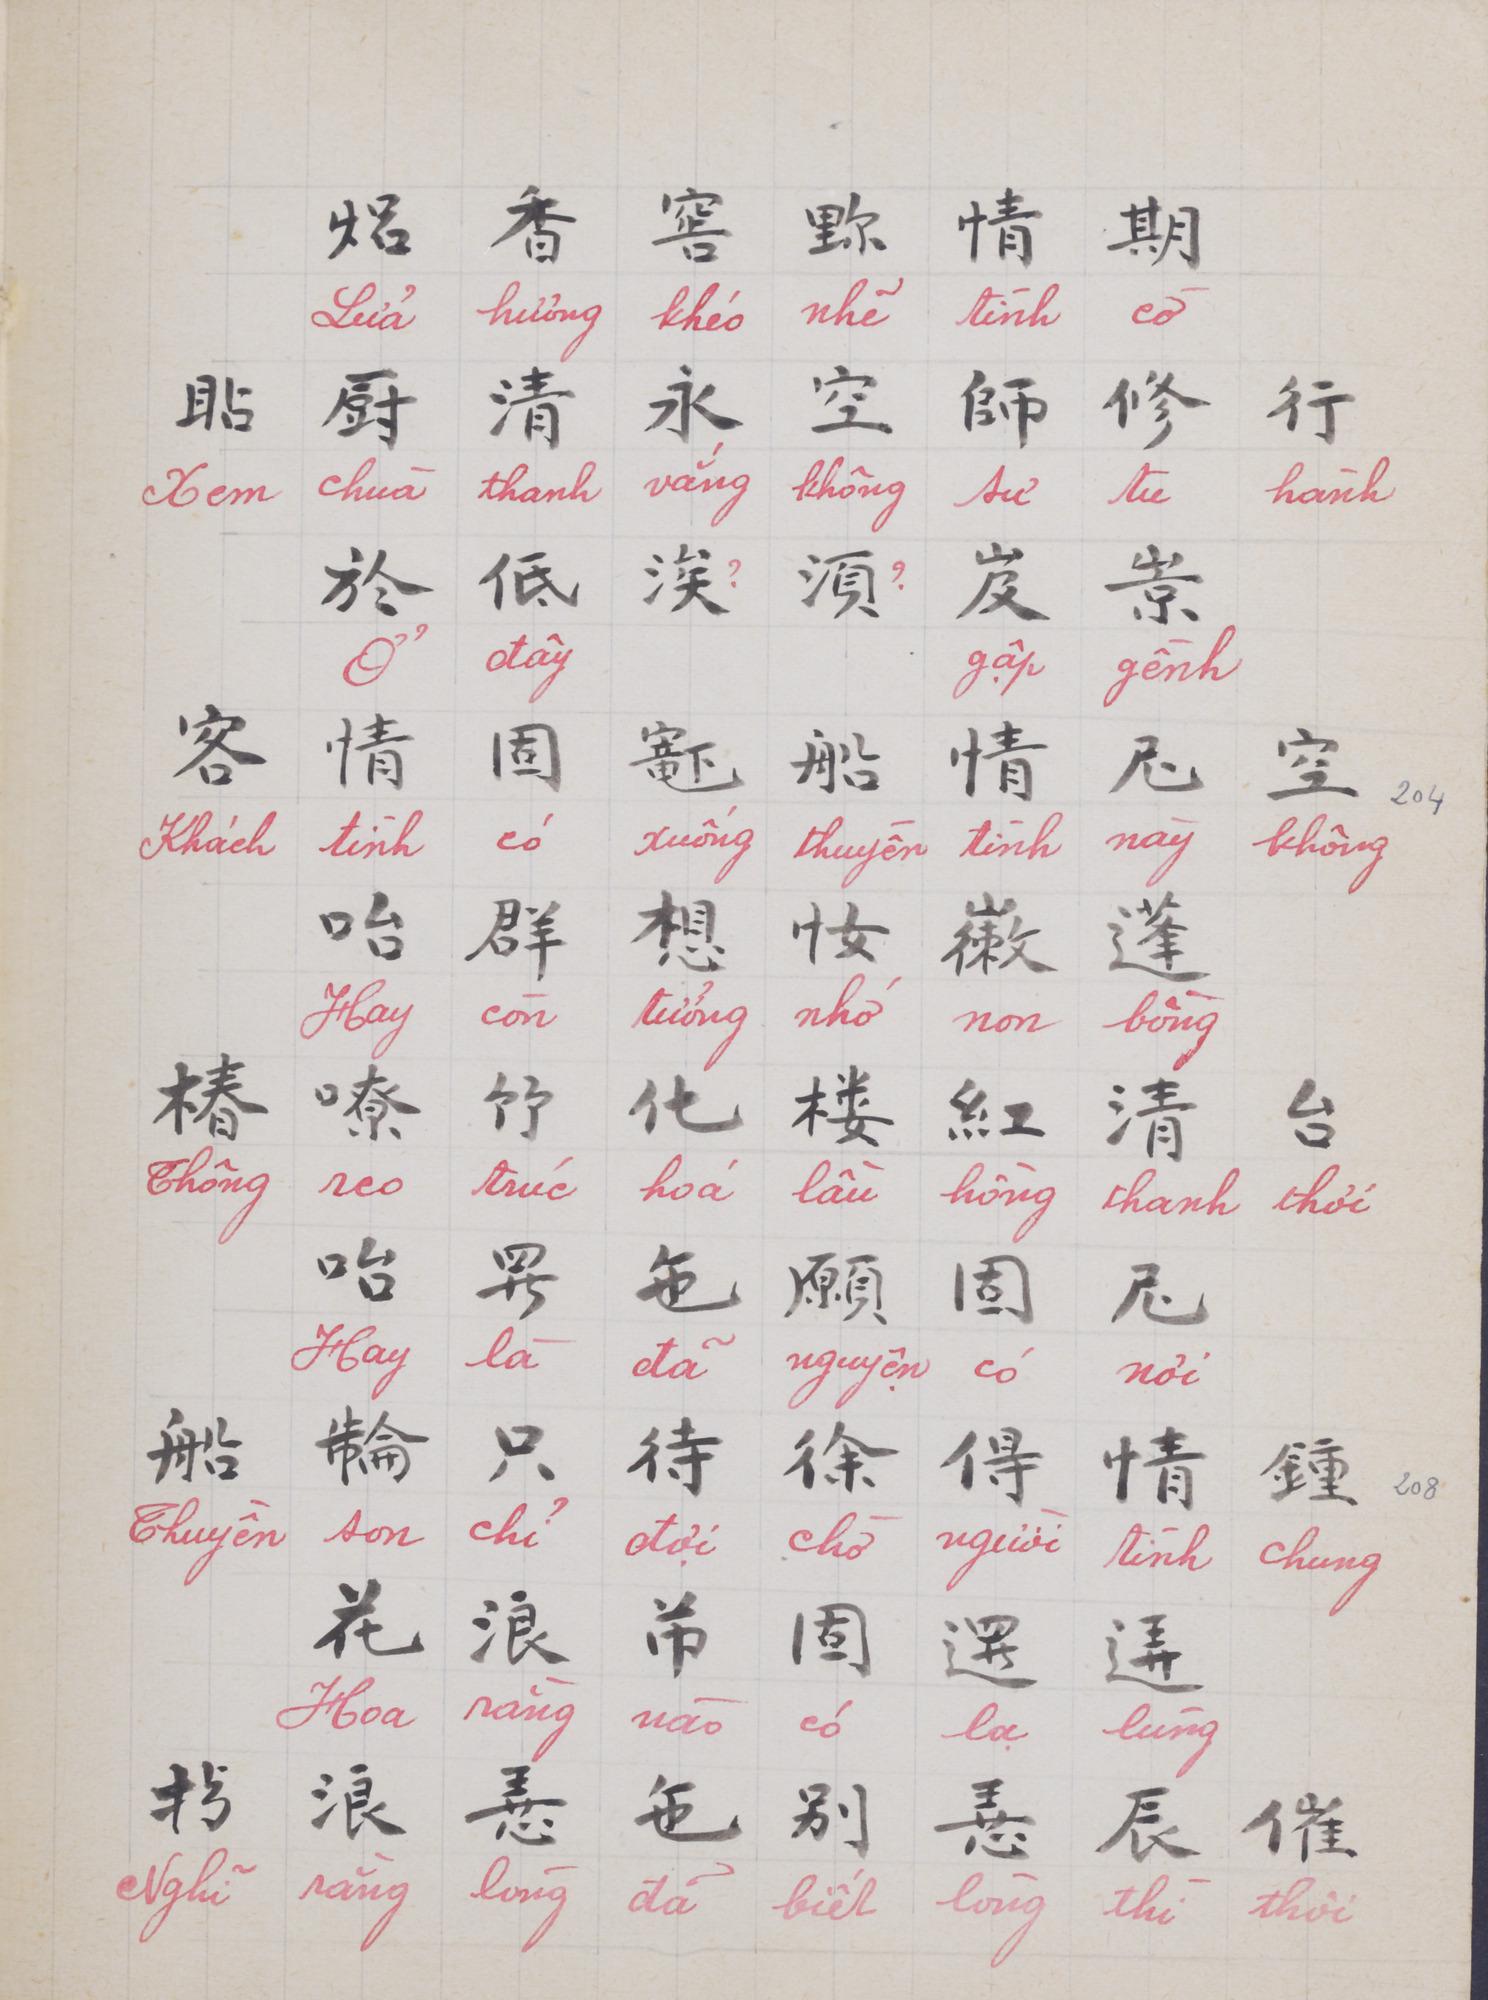 焒香窖𨤮情期
Lửa hương khéo nhẽ tình cờ
貼厨清永空師修行
Xem chùa thanh vắng không sư tu hành
於低涘?湏?岌岽
Ở đây gập gềnh
客情固𥨋船情尼空 204
Khách tình có xuống thuyền tình này không
咍群想㤇蓬
Hay còn tưởng nhớ non bồng
椿嘹竹化楼紅清台
Thông reo trúc hoá lầu hồng thanh thơi
咍羅㐌願固尼
Hay là đã nguyện có nơi
船輪只待徐得情鍾 208
Thuyền son chỉ đợi chờ người tình chung
花浪芇固邏逰
Hoa rằng nào có lạ lùng
扲浪𢚸㐌别𢚸辰催
Nghĩ rằng lòng đã biết lòng thì thôi